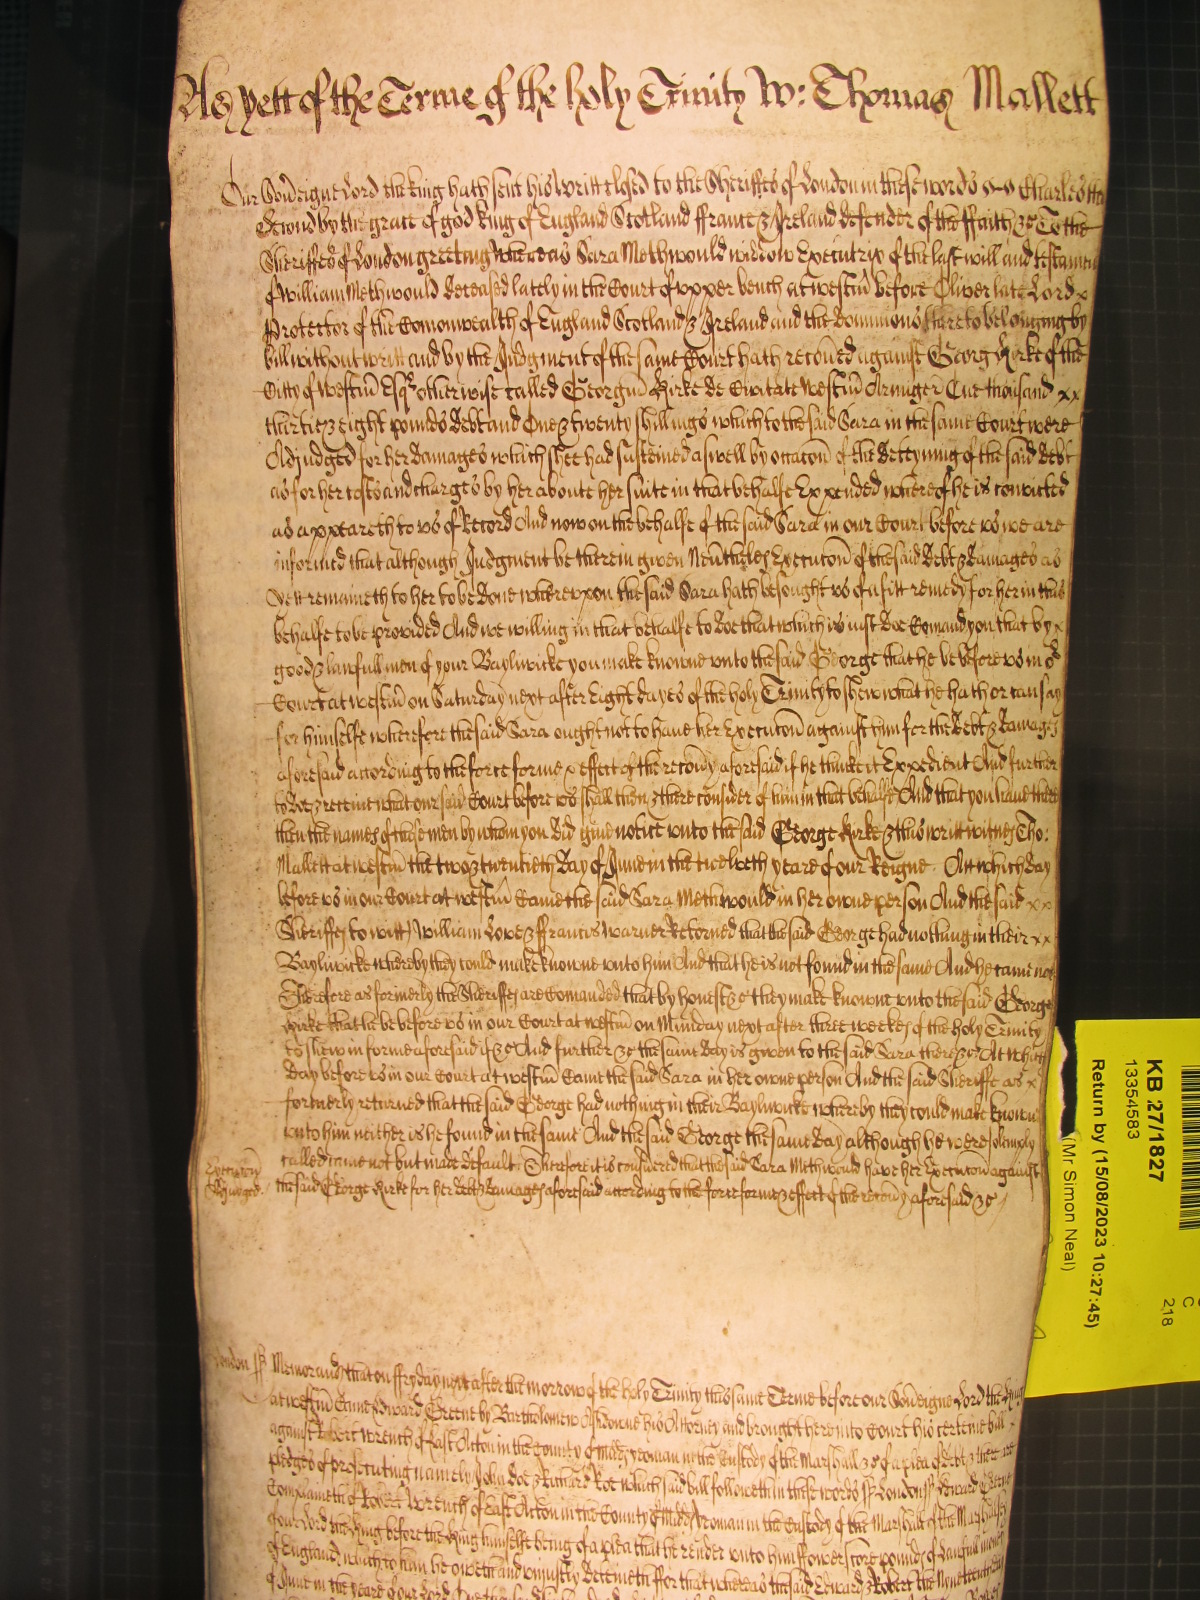 As yett of the Terme of the holy Trinity W: Thomas Mallett
Our Soveigne Lord the king hath sent his writt closed to the Sheriffes of London in these words Charles the
Second by the grace of god king of England Scotland ffrance & Ireland defender of the ffaith &c To the
Sheriffes of London greeting whereas Sara Methwould widdow Executrix of the last will and testament
of William Methwould deceased lately in the Court of upper bench at westm before Oliver late Lord x
Protector of the Comonwealth of England Scotland & Ireland and the dominions thereto belonging by
bill without writt and by the Judgment of the same Court hath recoued against Georg Kirke of the
Citty of Westm Esqr otherwise called Georgiu Kirke de Civitate Westm Armiger One thousand xx
thirtie & eight pounds debt and One & twenty shillings which to the said Sara in the same Court were
Adjudged for her damages which shee had susteined aswell by occacon of the deteyning of the said debt
as for her costs and charges by her aboute her suite in that behalfe Expended whereof he is convicted
as appeareth to us of Record And now on the behalfe of the said Sara in our Court before us we are
informed that although Judgment be therein given Neutheles Execucon of the said debt & damages as
yett remaineth to her to be done whereupon the said Sara hath besought us of a fitt remedy for her in this
behalfe to be provided And we willing in that behalfe to doe that which is just doe Comand you that by x
good & lawfull men of your Bayliwicke you make knowne unto the said George that he be before us in or
Court at westm on Saturday next after Eight dayes of the holy Trinity to shew what he hath or can say
for himselfe wherefore the said Sara ought not to have her Execucon against him for the debt & damages
aforesaid according to the force forme & effect of the recouy aforesaid if he thinke it Expedient And further
to doe & receive what our said Court before us shall then & there consider of him in that behalfe And that you have there
then the names of those men by whom you did give notice unto the said George Kirke & this writt witnes Tho:
Mallett at westm the two & twentieth day of June in the twelveth yeare of our Reigne. Att which day
before us in our Court at westm Came the said Sara Methwould in her owne person And the said xx
Sheriffes to witt William Love & ffrancis Warner Retorned that the said George had nothing in their xx
Bayliwicke whereby they could make knowne unto him And that he is not found in the same And he came not
Therefore as formerly the Sheriffes are Comanded that by honest &c they make knowne unto the said George
Kirke that he be before us in our Court at westm on Munday next after three weekes of the holy Trinity
to shew in forme aforesaid if &c And further &c the same day is given to the said Sara there &c At which
day before us in our Court at westm Came the said Sara in her owne person And the said Sheriffe as x
formerly returned that the said George had nothing in their Bayliwicke whereby they could make knowne
unto him neither is he found in the same And the said George the same day although he were solemply
called came not but made default. Therefore it is considered that the said Sara Methwould have her Execucon against
Execucon
Adjudged
the said George Kirke for her debt & damages aforesaid according to the force forme & effect of the recouy aforesaid &c
London ss Memorand that on ffryday next after the morrow of the holy Trinity this same Terme before our Soveigne Lord the King
at westm Came Edward Greene by Bartholomew his Attorney and brought here into Court his certeine bill
against Robert Wrench of East Acton in the County of Midd yeoman in the Custody of the Marshall &c of a plea of debt & there are
pledges of prosecuting namely John doe & Richard Roe which said bill followeth in these words ss London ss Edward Greene
Complaineth of Robert Wrench of East Acton in the County of Midd yeoman in the Custody of the Marshall of the Marshalsey
of our Lord the King before the King himselfe being of a plea that he render unto him ffower score pounds of lawfull money
of England which to him he oweth and unjustly deteineth ffor that whereas the said Edward & Robert the Nyneteenth day
of June in the yeare of our Lord
KB 27/1827
13354583
Return by (15/08/2023 10:27:45)
(Mr Simon Neal)
218
C